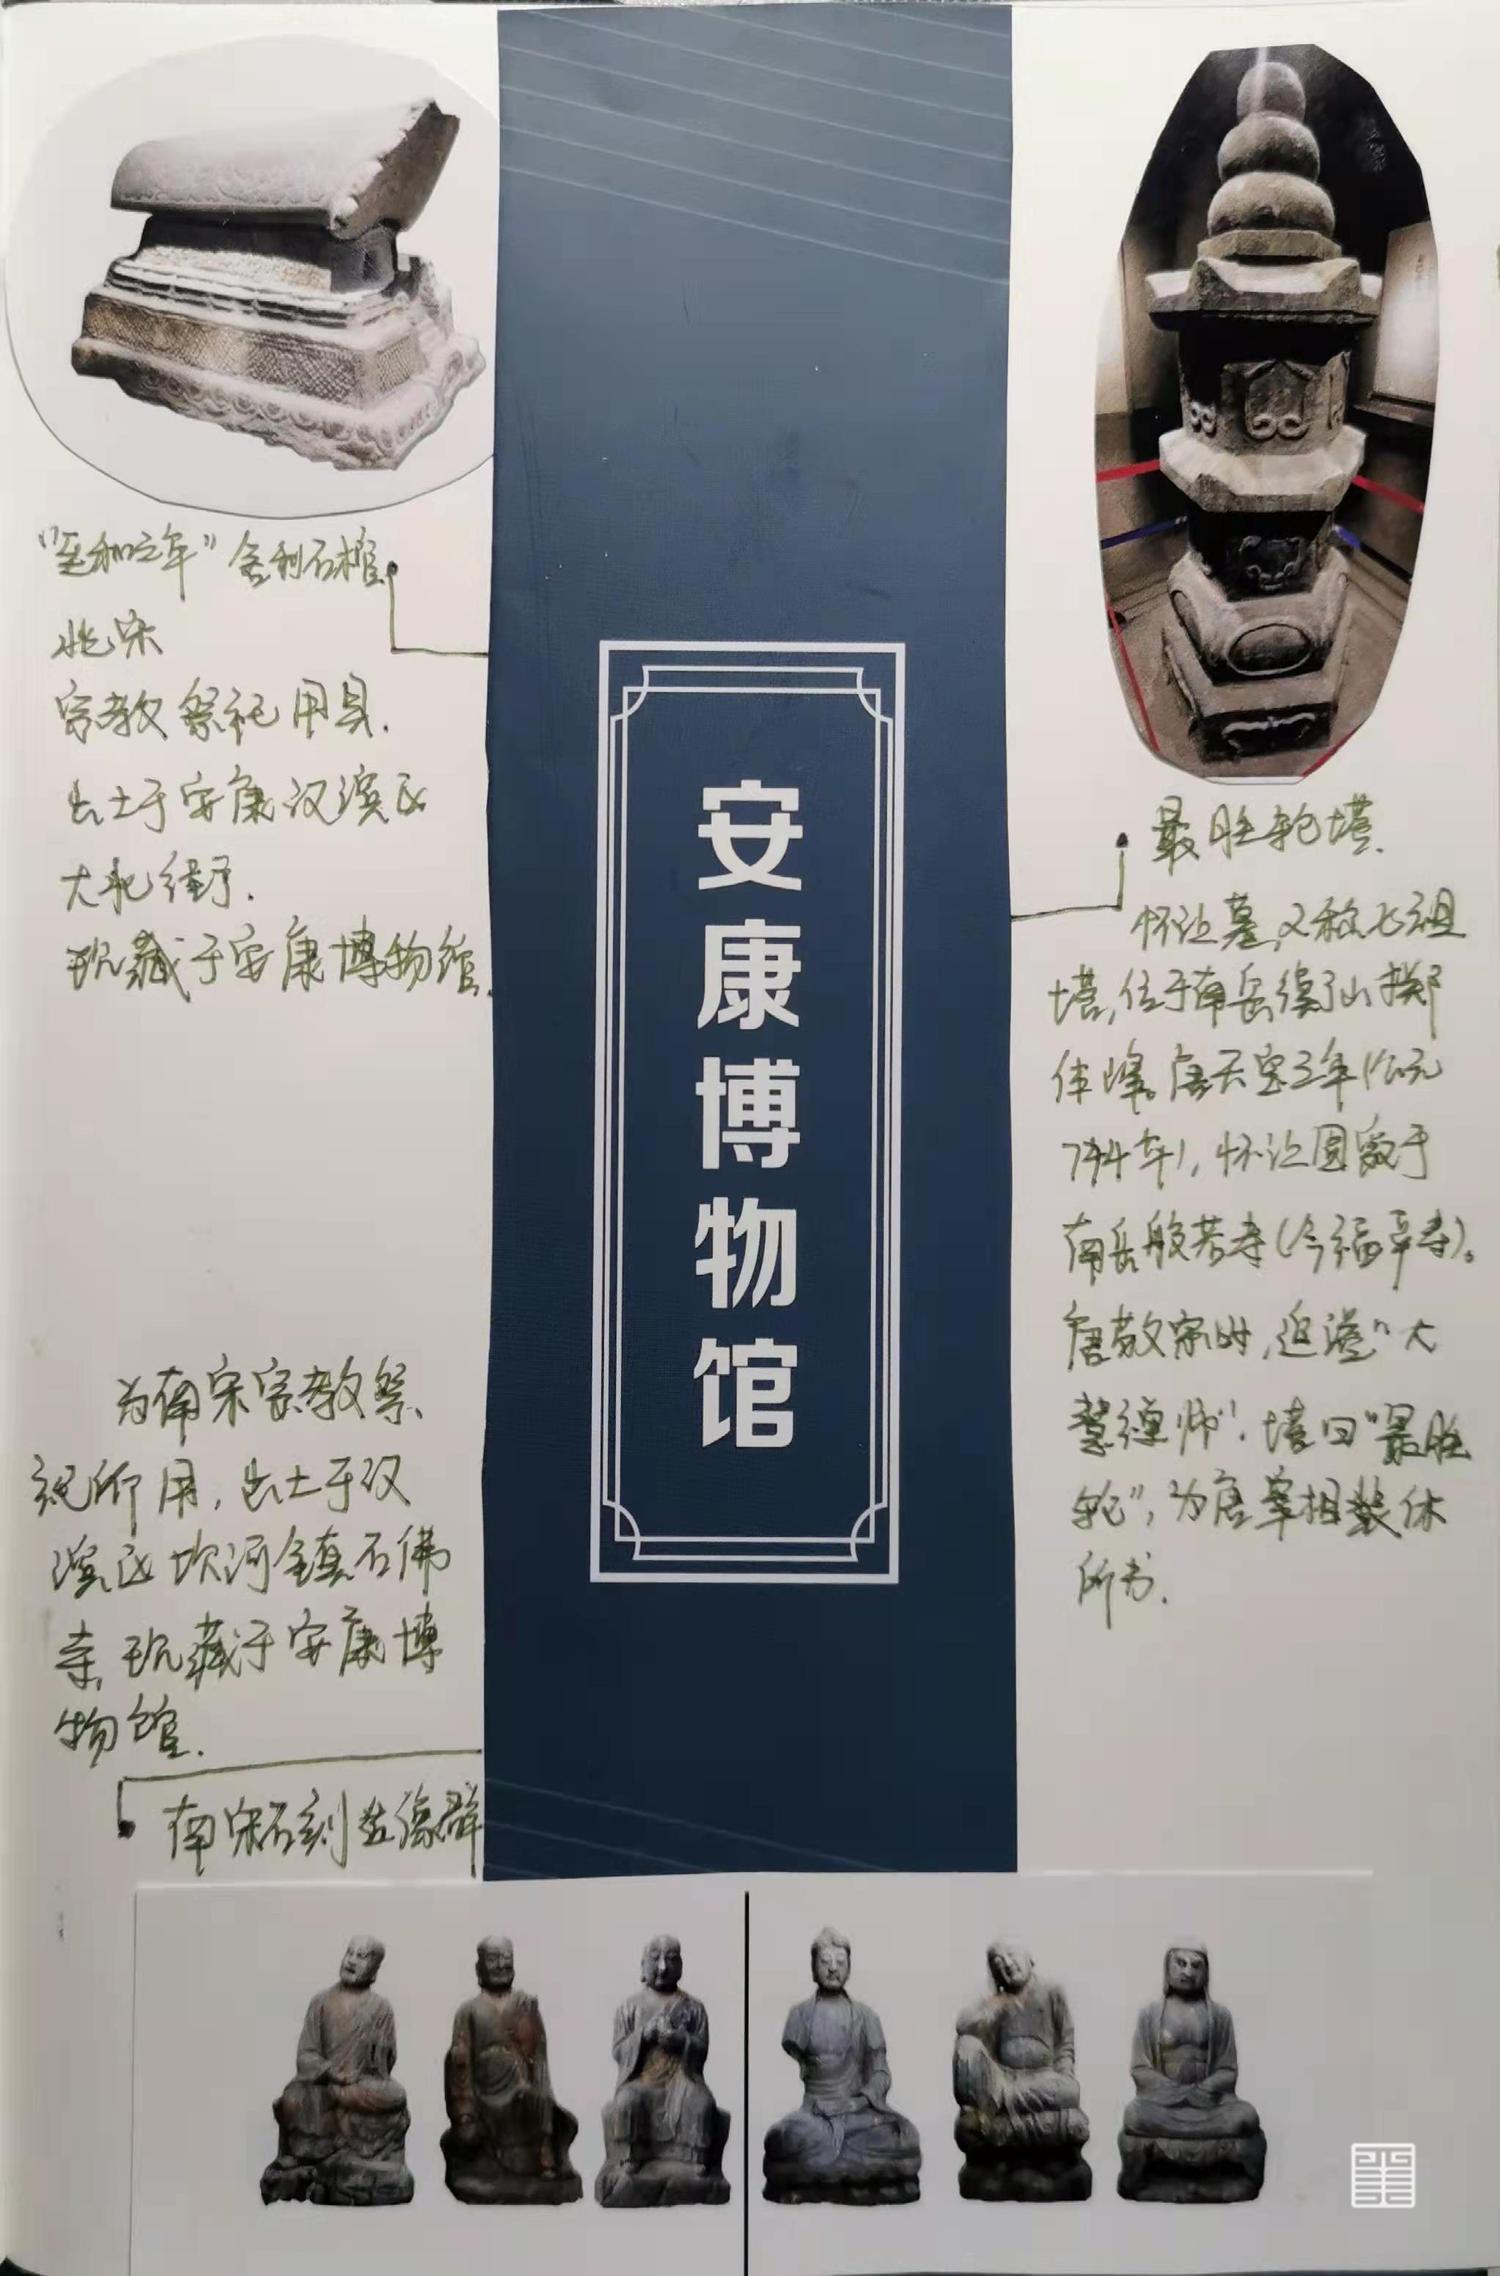 "至和元年"舍利石椁
北宋
宗教祭祀用具.
出土于安康汉滨区
大北街.
现藏于安康博物馆.
为南宋宗教祭
祀所用,出土于汉
滨区坎河镇石佛
寺,现藏于安康博
物馆.
南宋石刻造像群
安康博物馆
最胜轮塔.
怀让墓,又称七祖
塔,位于南岳衡山掷
体峰。唐天宝三年(公元
744年),怀让圆寂于
南岳般若寺(今福严寺)。
唐敬宗时,追谥"大
慧禅师".塔曰"最胜
轮",为唐宰相裴休
所书.